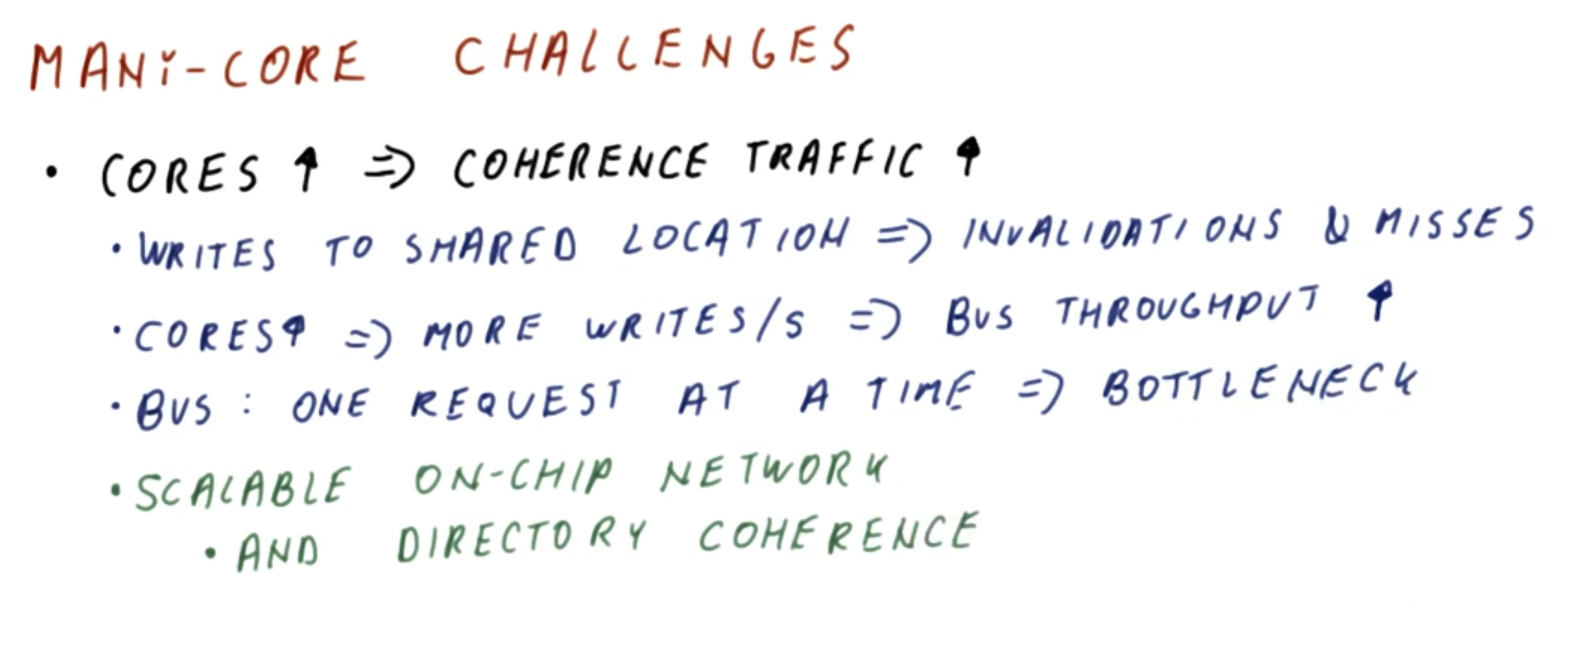 MANi-CORE CHALLENGES
• CORES ↑ => COHERENCE TRAFFIC ↑
• WRITES TO SHARED LOCATION => INVALIDATIONS & MISSES
• CORES↑ => MORE WRITES/S => BUS THROUGHPUT ↑
• BUS : ONE REQUEST AT A TIME => BOTTLENECK
• SCALABLE ON-CHIP NETWORK
• AND DIRECTORY COHERENCE